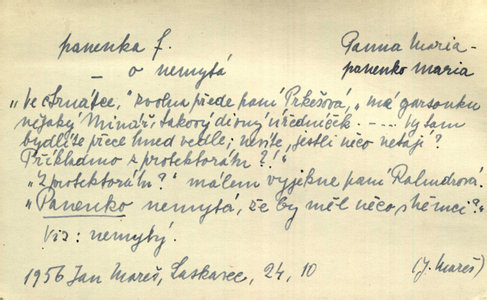 panenka f.
Panna Maria-
panenko maria
– o nemytá
„Ve Strnátce," zvolna přede paní Prkešová, „má garsonku
nějaký Minář, takový divný úředníček ---- vy tam
bydlíte přece hned vedle; nevíte, jestli něco netají?
Příkladmo s protektorátn?!"
„Z protektorátn?" málem vyjekne paní Kalmdrová.
„Panenko nemytá, že by měl něco s němci?"
Viz: nemytý.
1956 Jan Mareš, Laskavec, 24, 10
(J. Mareš)